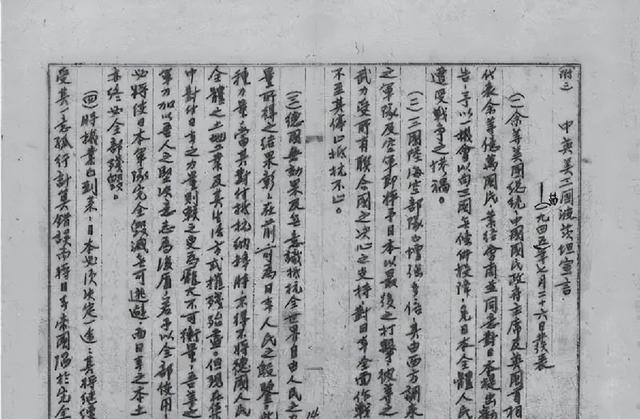 (附二)
中英美三國波茨坦宣言
——一九四五年七月二十六日發表
(一)余等美國總統中國國民政府主席及英國首相
代表余等億萬國民業經會商並同意對日本提出勸
告予以一機會以
遭受戰爭之慘禍。
(二)三國陸海空部隊已增強多倍其由西方調來
之軍隊及空軍即將予日本以最後之打擊彼等之
武力受所有聯合國之決心之支持對日本全面作戰
不至其停止抵抗不止。
(三)德國無効果及無意識抵抗全世界自由人民之力
量所得之結果彰彰在前可為日本人民之殷鑒此
種力量當其對付抵抗納粹時不得不將德國人民
全體之土地工業及其生活方式摧殘殆盡但現在集
中對付日本之力量則較之更為龐大不可衡量吾等之
軍力加以吾人之堅決意志為後盾若予以全部使用
必將使日本軍隊完全毀滅無可逃避而日本之本土
亦終必全部殘毀。
(四)時機業已到來日本必須決定一途其將繼續
受其一意孤行計算錯誤而將日本帝國陷於完全